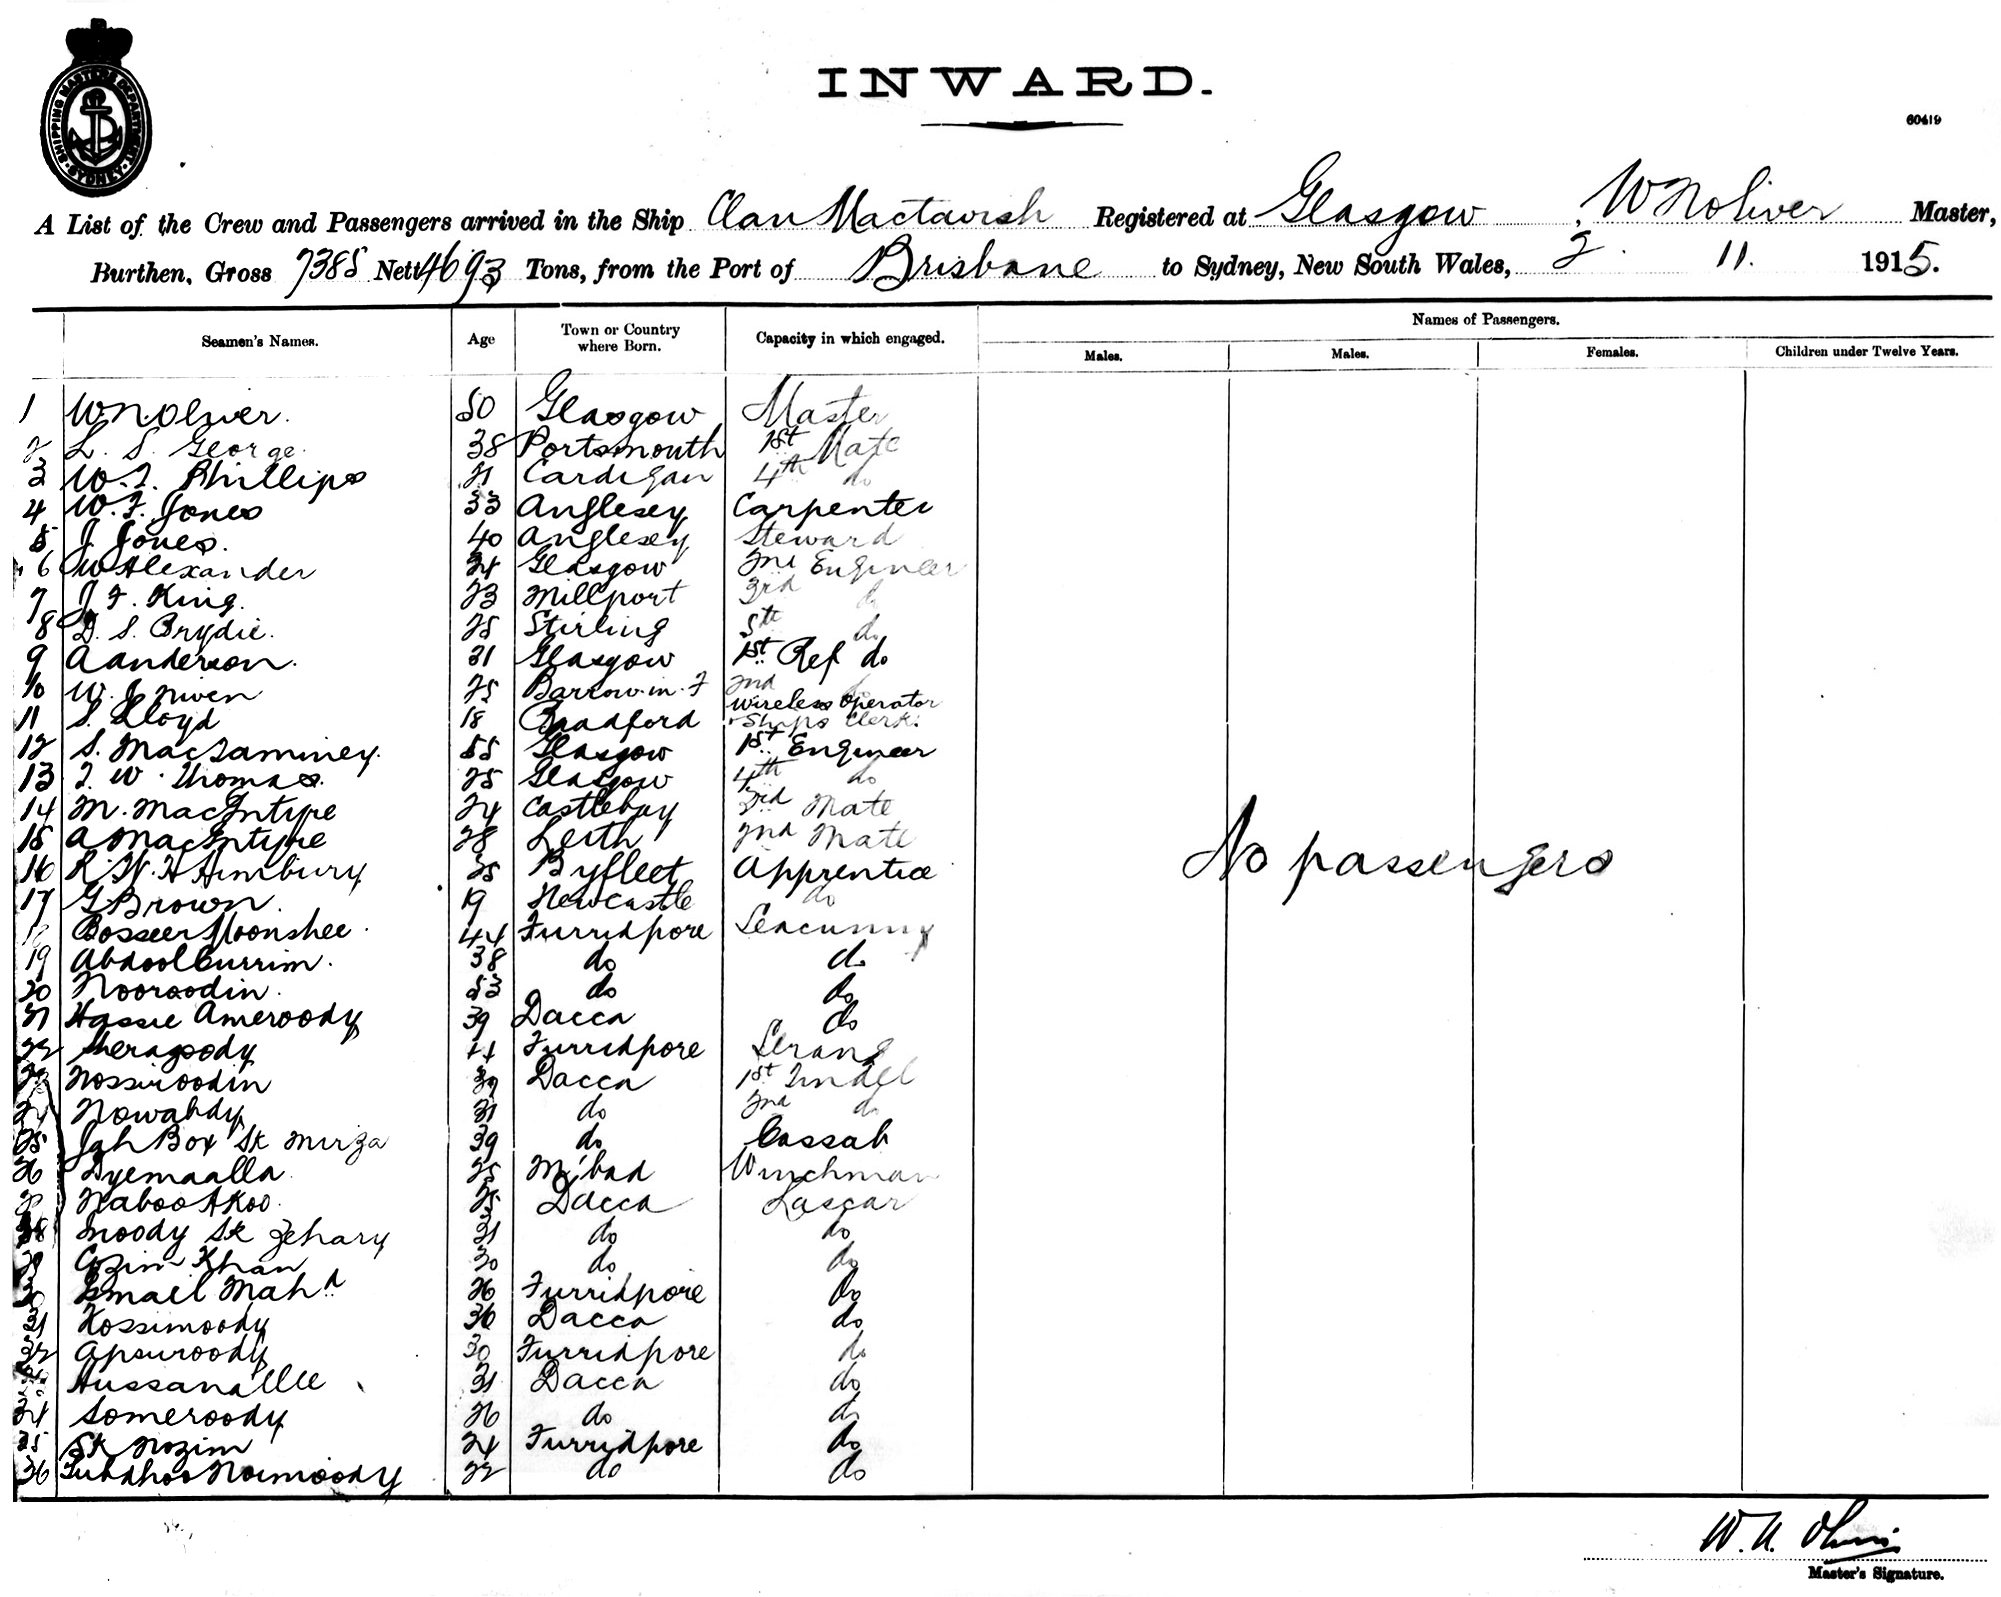 SHIPPING MASTERS DEPARTMENT SYDNEY
INWARD.
60419
A List of the Crew and Passengers arrived in the Ship Clan Mactavish Registered at Glasgow, W N Oliver Master,
Burthen, Gross 7385 Nett 4693 Tons, from the Port of Brisbane to Sydney, New South Wales, 2. 11. 1915.
Seamen's Names. Age Town or Country where Born. Capacity in which engaged. Names of Passengers.
Males. Males. Females. Children under Twelve Years.
1 W.N. Oliver. 50 Glasgow Master
2 L. S. George. 38 Portsmouth 1st Mate
3 W. J. Phillips 21 Cardigan 4th do
4 W. J. Jones 33 Anglesey Carpenter
5 J Jones. 40 Anglesey Steward
6 W Alexander 24 Glasgow 2nd Engineer
7 J. F. King. 23 Millport 3rd do
8 D. S. Brydie. 25 Stirling 5th do
9 A Anderson. 31 Glasgow 1st Ref do
10 W. J Niven 25 Barrow.in.F 2nd do
11 S. Lloyd 18 Bradford Wireless Operator + Ships Clerk.
12 S. 55 Glasgow 1st Engineer
13 J. W. Thomas. 25 Glasgow 4th do
14 M. MacIntyre 24 Castlebay 3rd Mate
15 A MacIntyre 28 Leith 2nd Mate
16 R. W. H 25 Byfleet Apprentice
17 G Brown. 19 Newcastle do
18 Bosseer Moonshee. 44 Furridpore Seacunny
19 Abdool Currim. 38 do do
20 Nooroodin. 53 do do
21 Hassie Ameroody 39 Dacca do
22 44 Furridpore Serang
23 Nossiroodin 39 Dacca 1st Tindel
24 Nowabdy 31 do 2nd do
25 Jah Box Sk Mirza 39 do Cassab
26 Dyemaalla. 25 M'bad Winchman
27 Naboo Akoo. 25 Dacca Lascar
28 Moody Sk Zehary 31 do do
29 Khan 30 do do
30 Ismael Mahd. 26 Furridpore do
31 Kossimoody 36 Dacca do
32 Apsuroody 30 Furridpore do
33 Hussanallee 31 Dacca do
34 Someroody 26 do do
35 Sk Nozim 24 Furridpore do
36 Noimoody 22 do do
No passengers
W. N. Oliver
Master's Signature.